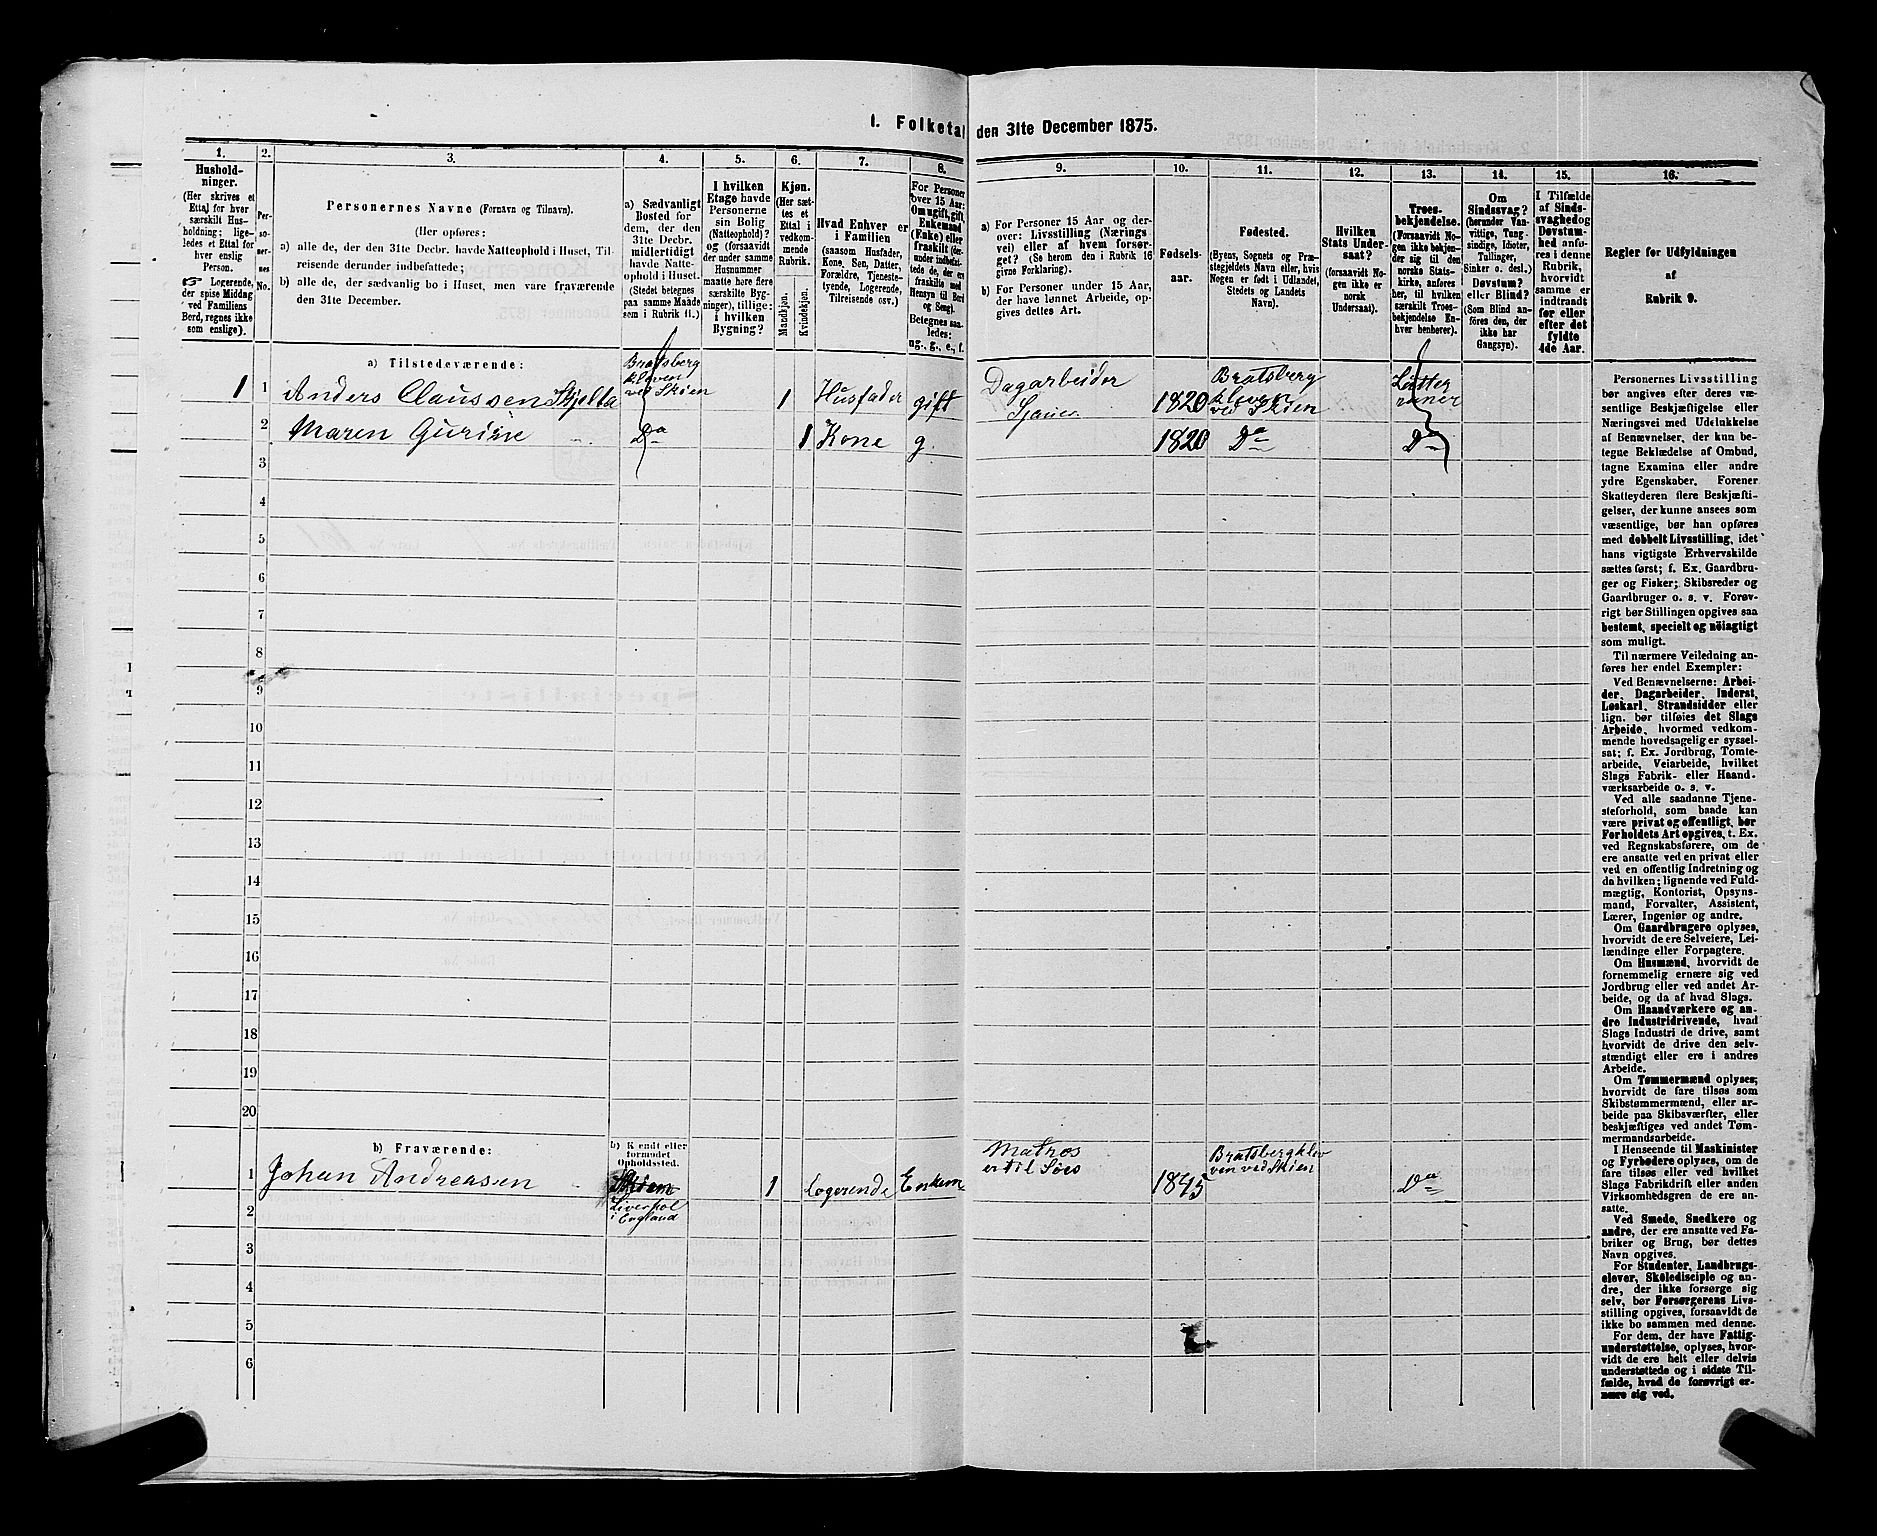 1. Folketal den 31te December 1875.
1.
2.
3.
4.
5.
6.
7.
8.
9.
10.
11.
12.
13.
14.
15.
16.
Hushold-
ninger.
(Her skrives et
Ettal for hver
særskilt Hus-
holdning; lige-
ledes et Ettal for
hver enslig
Person.
☞ Logerende,
der spise Middag
ved Familiens
Bord, regnes ikke
som enslige).
Per-
so-
ner-
nes
No.
Personernes Navne (Fornavn og Tilnavn).
(Her opføres:
a) alle de, der den 31te Decbr. havde Natteophold i Huset, Til-
reisende derunder indbefattede;
b) alle de, der sædvanlig bo i Huset, men vare fraværende
den 31te December.
a) Sædvanligt
Bosted for
dem, der den
31te Decbr.
midlertidigt
havde Natte-
ophold i Huset.
(Stedet betegnes
paa samme Maade
som i Rubrik 11.)
I hvilken
Etage havde
Personerne
sin Bolig
(Natteophold)?
og (forsaavidt
der under samme
Husnummer
maatte høre flere
særskilte Byg-
ninger), tillige:
i hvilken
Bygning?
Kjøn.
(Her sæt-
tes et
Ettal i
vedkom-
mende
Rubrik.
Mandkjøn.
Kvindekjøn.
Hvad Enhver er
i Familien
(saasom Husfader,
Kone, Søn, Datter,
Forældre, Tjeneste-
tyende, Logerende,
Tilreisende osv.)
For Personer
over 15 Aar:
Om ugift, gift,
Enkemand
(Enke) eller
fraskilt (der-
under indbefat-
tede de, der ere
fraskilte med
Hensyn til Bord
og Seng).
Betegnes saa-
ledes:
ug., g., e., f.
a) For Personer 15 Aar og der-
over: Livsstilling (Nærings-
vei) eller af hvem forsør-
get? (Se herom den i Rubrik 16
givne Forklaring).
b) For Personer under 15 Aar,
der have lønnet Arbeide, op-
gives dettes Art.
Fødsels-
aar.
Fødested.
(Byens, Sognets og Præ-
stegjeldets Navn eller, hvis
Nogen er født i Udlandet,
Stedets og Landets
Navn).
Hvilken
Stats Under-
saat?
(forsaavidt No-
gen ikke er
norsk
Undersaat).
Troes-
bekjendelse.
(Forsaavidt No-
gen ikke bekjen-
der sig til den
norske Stats-
kirke, anføres
her, til hvilken
særskilt Troes-
bekjendelse En-
hver henhører).
Om
Sindssvag?
(herunder Van-
vittige, Tung-
sindige, Idioter,
Tullinger,
Sinker o. desl.)
Døvstum?
eller Blind?
(Som Blind an-
føres den, der
ikke har
Gangsyn).
I Tilfælde
af Sinds-
svaghed og
Døvstum-
hed anfø-
res i denne
Rubrik,
hvorvidt
samme er
indtraadt
før eller
efter det
fyldte
4de Aar.
Regler for Udfyldningen
af
Rubrik 9.
a) Tilstedeværende:
1 1 Anders Claussen Skjelta
Bratsberg
kleven
ved Skien
1 Husfader gift
Dagarbeider
Sjauer
1820
Bratsberg
kleven
ved Skien
Lutter
raner
2 Maren Gurine Do 1 Kone g. 1820 Do Do
3
4
5
6
7
8
9
10
11
12
13
14
15
16
17
18
19
20
b) Fraværende:
b) Kjendt eller
formodet
Opholdssted.
1 Johan Andreasen
Skien
Liverpol
i England
1 Logerende Enkem
Mathros
er til Søes
1845
Bratsbergklev
ven ved Skien
Do
2
3
4
5
6
Personernes Livsstilling
bør angives efter deres væ-
sentlige Beskjæftigelse eller
Næringsvei med Udelukkelse
af Benævnelser, der kun be-
tegne Beklædelse af Ombud,
tagne Examina eller andre
ydre Egenskaber. Forener
Skatteyderen flere Beskjæfti-
gelser, der kunne ansees som
væsentlige, bør han opføres
med dobbelt Livsstilling, idet
hans vigtigste Erhvervskilde
sættes først; f. Ex. Gaardbru-
ger og Fisker; Skibsreder og
Gaardbruger o. s. v. Forøv-
rigt bør Stillingen opgives saa
bestemt, specielt og nöiagtigt
som muligt.
Til nærmere Veiledning an-
føres her endel Exempler:
Ved Benævnelserne: Arbei-
der, Dagarbeider, Inderst,
Løskarl, Strandsidder eller
lign. bør tilføies det Slags
Arbeide, hvormed vedkom-
mende hovedsagelig er syssel-
sat; f. Ex. Jordbrug, Tomte-
arbeide, Veiarbeide, hvilket
Slags Fabrik- eller Haand-
værksarbeide o. s. v.
Ved alle saadanne Tjene-
steforhold, som baade kan
være privat og offentligt, bør
Forholdets Art opgives, t. Ex.
ved Regnskabsførere, om de
ere ansatte ved en privat eller
ved en offentlig Indretning og
da hvilken; lignende ved Fuld-
mægtig, Kontorist, Opsyns-
mand, Forvalter, Assistent,
Lærer, Ingeniør og andre.
Om Gaardbrugere oplyses,
hvorvidt de ere Selveiere, Lei-
lændinge eller Forpagtere.
Om Husmænd, hvorvidt de
fornemmelig ernære sig ved
Jordbrug eller ved andet Ar-
beide, og da af hvad Slags.
Om Haandværkere og an-
dre Industridrivende, hvad
Slags Industri de drive, samt
hvorvidt de drive den selv-
stændigt eller ere i andres
Arbeide.
Om Tømmermænd oplyses;
hvorvidt de fare tilsøs som
Skibstømmermænd, eller ar-
beide paa Skibsværfter, eller
beskjæftiges ved andet Tøm-
mermandsarbeide.
I Henseende til Maskinister
og Fyrbødere oplyses, om de
fare tilsøs eller ved hvilket
Slags Fabrikdrift eller anden
Virksomhedsgren de ere an-
satte.
Ved Smede, Snedkere og
andre, der ere ansatte ved Fa-
briker og Brug, bør dettes
Navn opgives.
For Studenter, Landbrugs-
elever, Skoledisciple og an-
dre, der ikke forsørge sig
selv, bør Forsørgerens Livs-
stilling opgives, forsaavidt de
ikke bo sammen med denne.
For dem, der have Fattig-
understøttelse, oplyses, hvor-
vidt de ere helt eller delvis
understøttede og i sidste Til-
fælde, hvad de forøvrigt er-
nære sig ved.